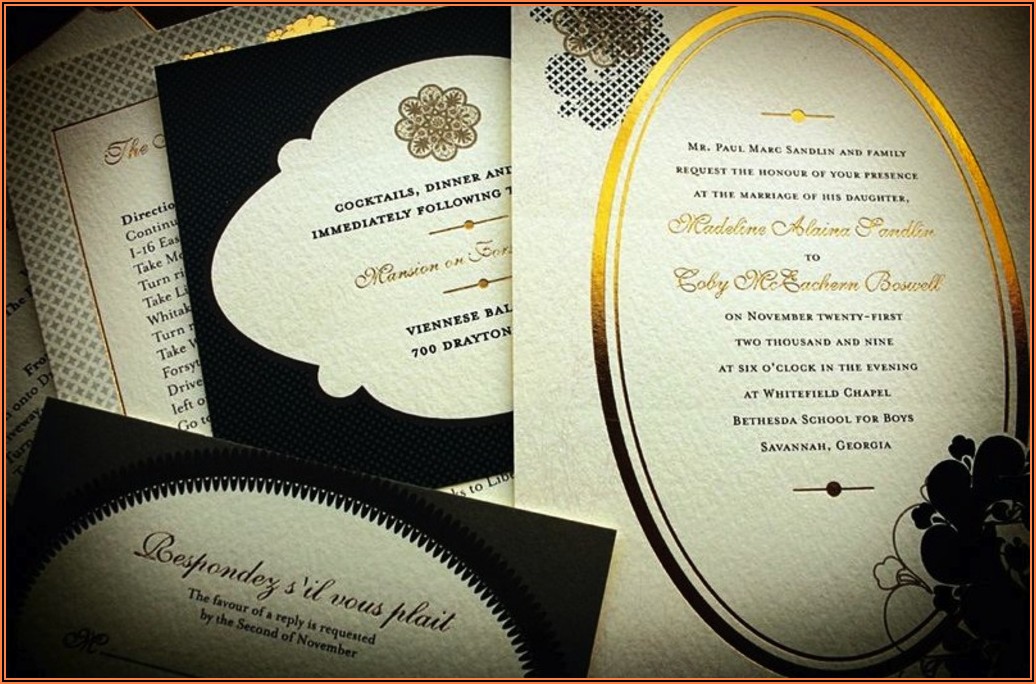 The
Directio
Continu
1-16 Eas
Take Me
Turn ri
Take Li
Whitak
Turn r
Take W
Forsyt
Drive
left o
Go to
COCKTAILS, DINNER AND
IMMEDIATELY FOLLOWING T
Mansion on Fors
VIENNESE BAL
700 DRAYTON
MR. PAUL MARC SANDLIN AND FAMILY
REQUEST THE HONOUR OF YOUR PRESENCE
AT THE MARRIAGE OF HIS DAUGHTER,
Madeline Alaina Sandlin
TO
Coby McEachern Boswell
ON NOVEMBER TWENTY-FIRST
TWO THOUSAND AND NINE
AT SIX O'CLOCK IN THE EVENING
AT WHITEFIELD CHAPEL
BETHESDA SCHOOL FOR BOYS
SAVANNAH, GEORGIA
Fro
onto Dr
Turn
ks to Lib
Respondez s'il vous plait
The favour of a reply is requested
by the Second of November
M